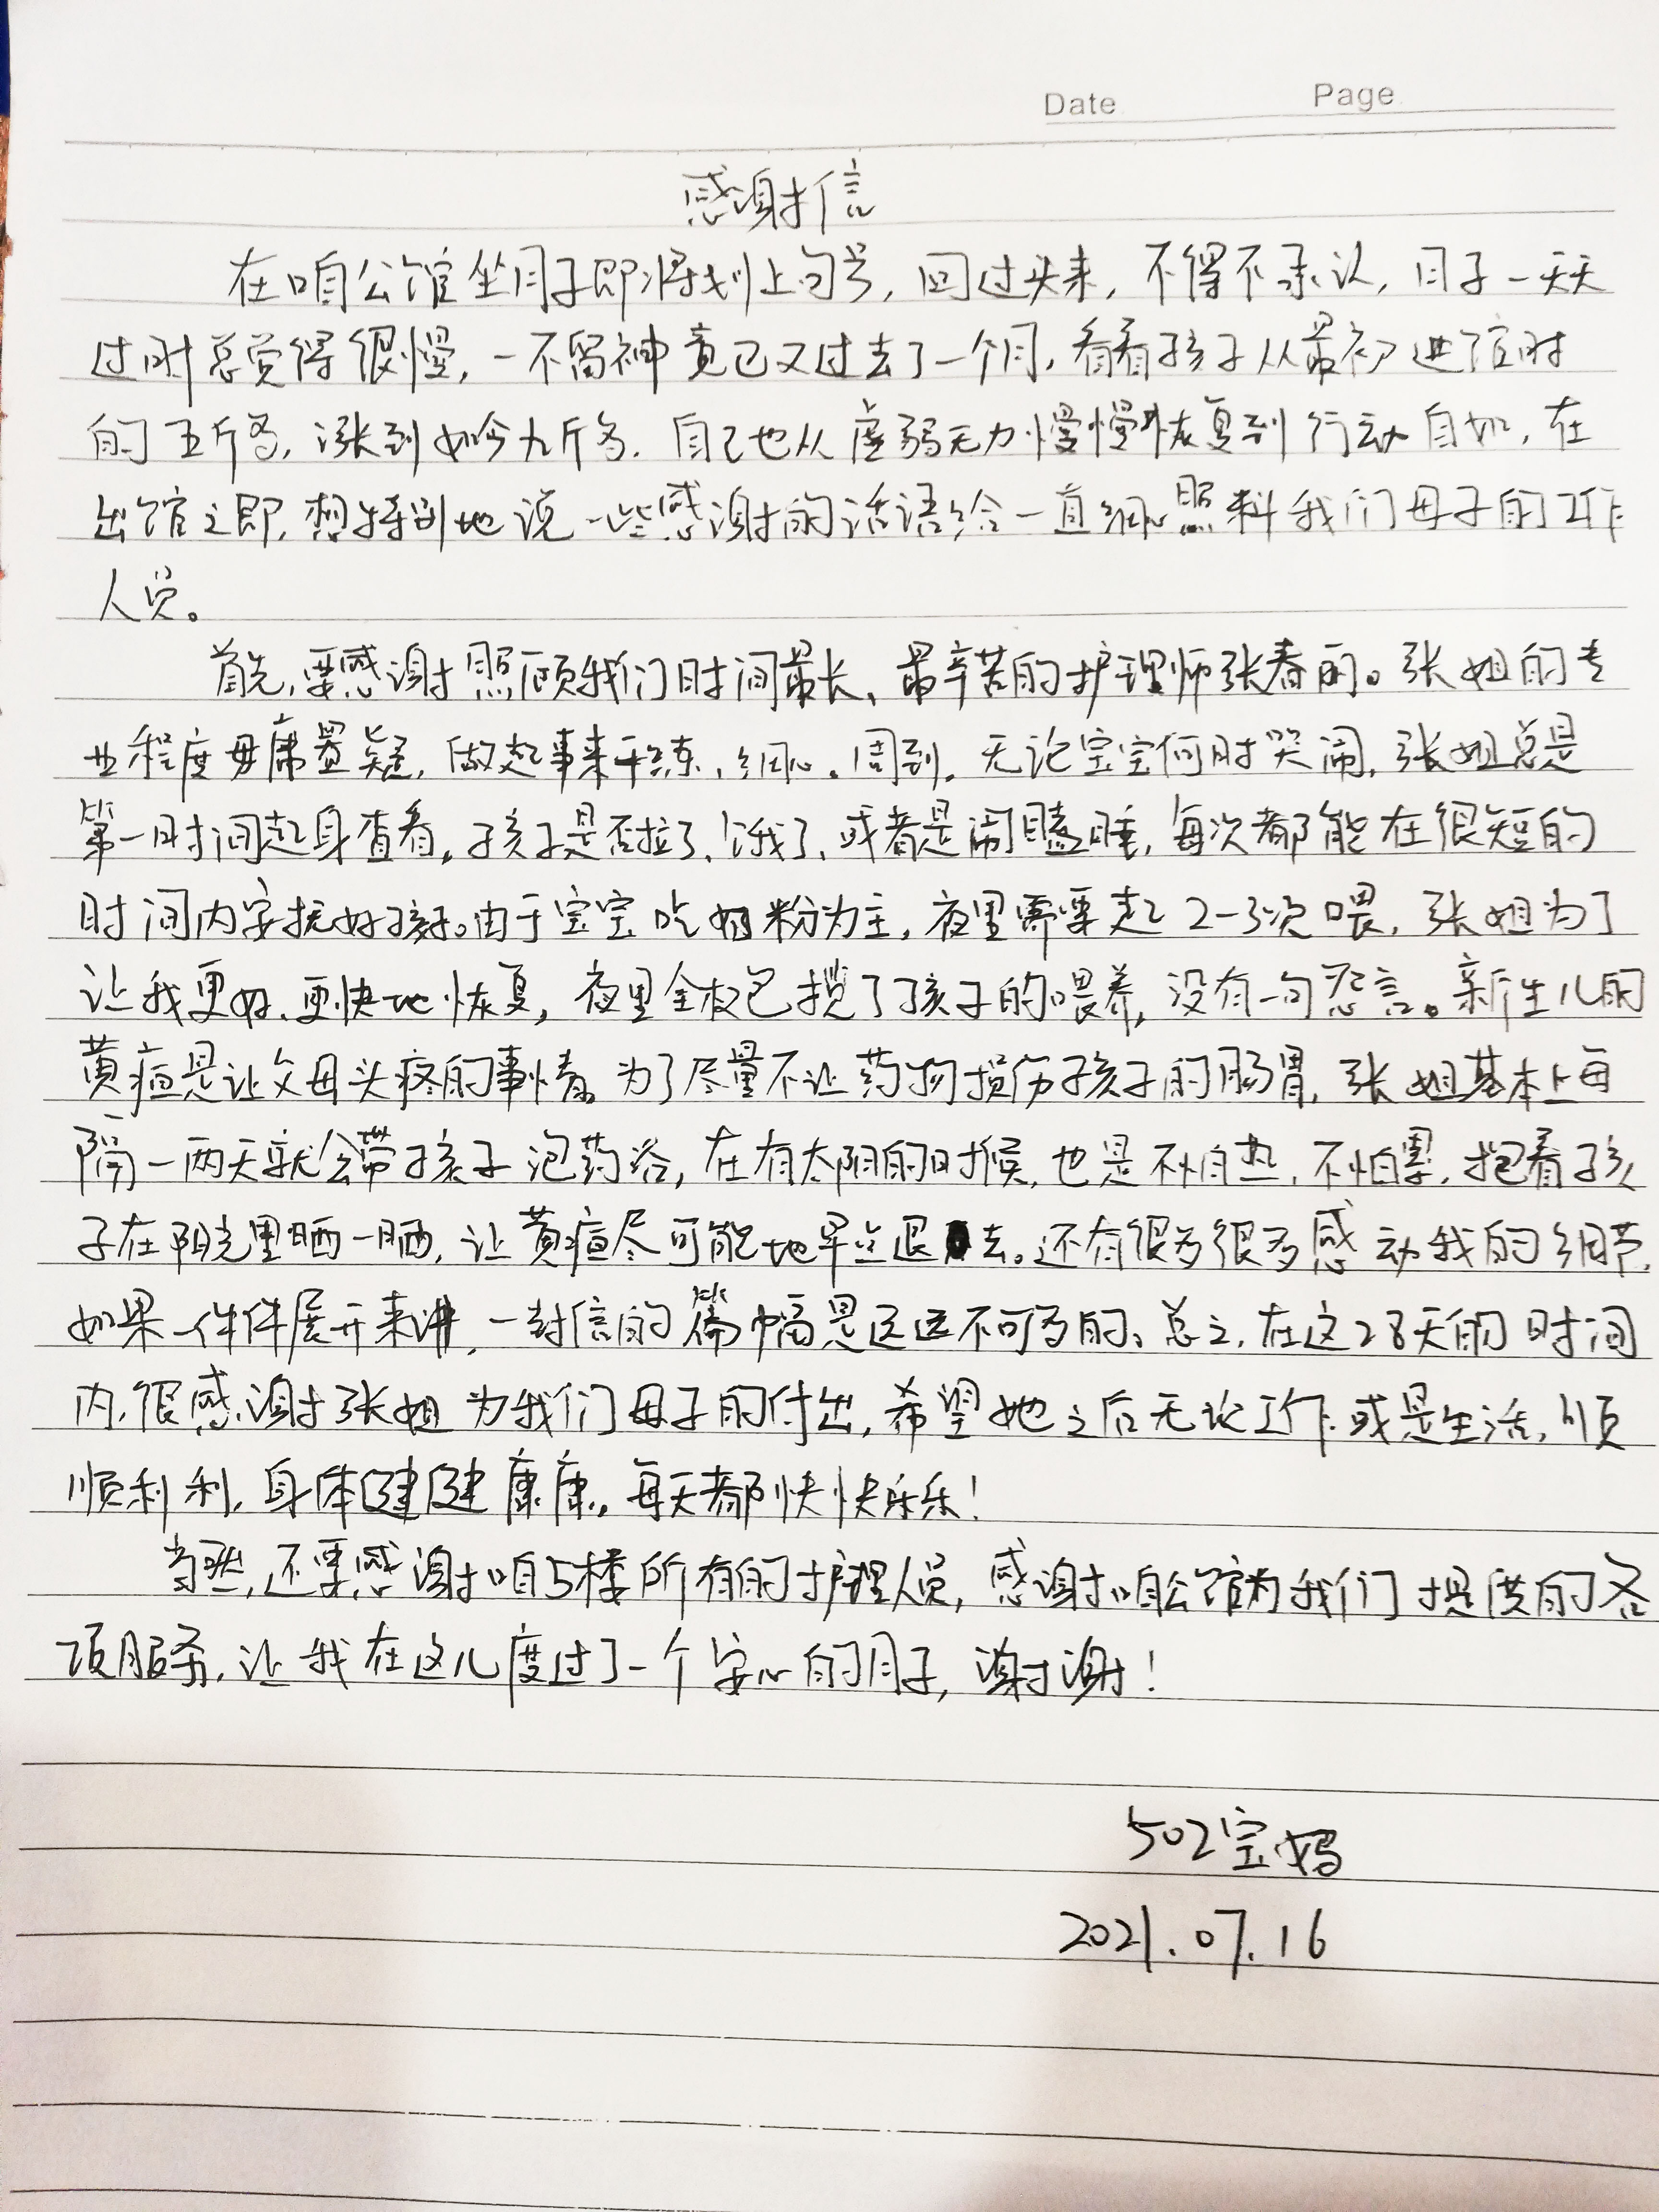 Date Page
感谢信
在咱公馆坐月子即将划上句号，回过头来，不得不承认，月子一天天
过时总觉得很慢，一不留神竟已又过去了一个月，看着孩子从最初进馆时
的五斤多，涨到如今九斤多，自己也从虚弱无力慢慢恢复到行动自如，在
出馆之即，想特别地说一些感谢的话语给一直细心照料我们母子的工作
人员。
首先，要感谢照顾我们时间最长、最辛苦的护理师张春丽。张姐的专
业程度毋庸置疑，做起事来干练、细心、周到，无论宝宝何时哭闹，张姐总是
第一时间起身查看，孩子是否拉了、饿了、或者是闹瞌睡，每次都能在很短的
时间内安抚好孩子。由于宝宝吃奶粉为主，夜里需要起2-3次喂，张姐为了
让我更好、更快地恢复，夜里全权包揽了孩子的喂养，没有一句怨言。新生儿的
黄疸是让父母头疼的事情，为了尽量不让药物损伤孩子的肠胃，张姐基本上每
隔一两天就会带孩子泡药浴，在有太阳的时候，也是不怕热、不怕累，抱着孩
子在阳光里晒一晒，让黄疸尽可能地早点退去。还有很多很多感动我的细节，
如果一件件展开来讲，一封信的篇幅是远远不可多的、总之，在这28天的时间
内，很感谢张姐为我们母子的付出，希望她之后无论工作或是生活，顺
顺利利，身体健健康康，每天都快快乐乐！
当然，还要感谢咱5楼所有的护理人员，感谢咱公馆为我们提供的各
项服务，让我在这儿度过了一个安心的月子，谢谢！
502宝妈
2021.07.16